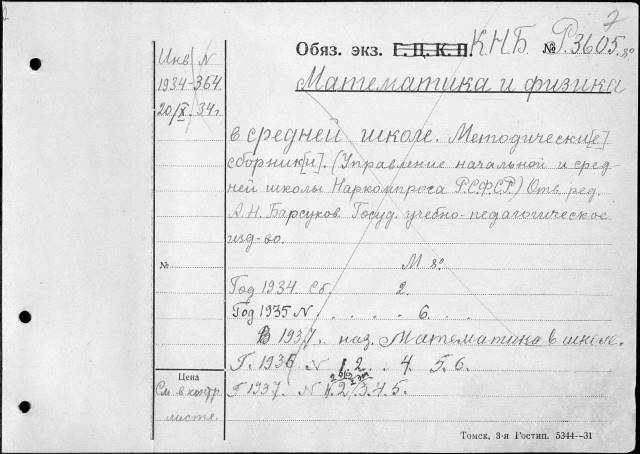 7
Обяз. экз. Г.Ц.К.П. К.Н.Б. № Р.3605 8°
Инв N
1934-364
20/X.34г
Математика и физика
в средней школе. Методически[е]
сборник[и]. (Управление начальной и сред
ней школы Наркомпроса Р.С.Ф.С.Р.) Отв. ред.
А.Н. Барсуков. Госуд. учебно-педагогическое
изд-во.
№ М 8°
Год 1934 Сб. 2.
Год 1935 N . . . . 6.
В 1937. наз. Математика в школе.
Г. 1936 N 1. 2. . 4. 5. 6.
Цена
См. в контр.
листе.
Г 1937. N 1. 2/3. 4. 5.
Томск, 3-я Гостип. 5344—31